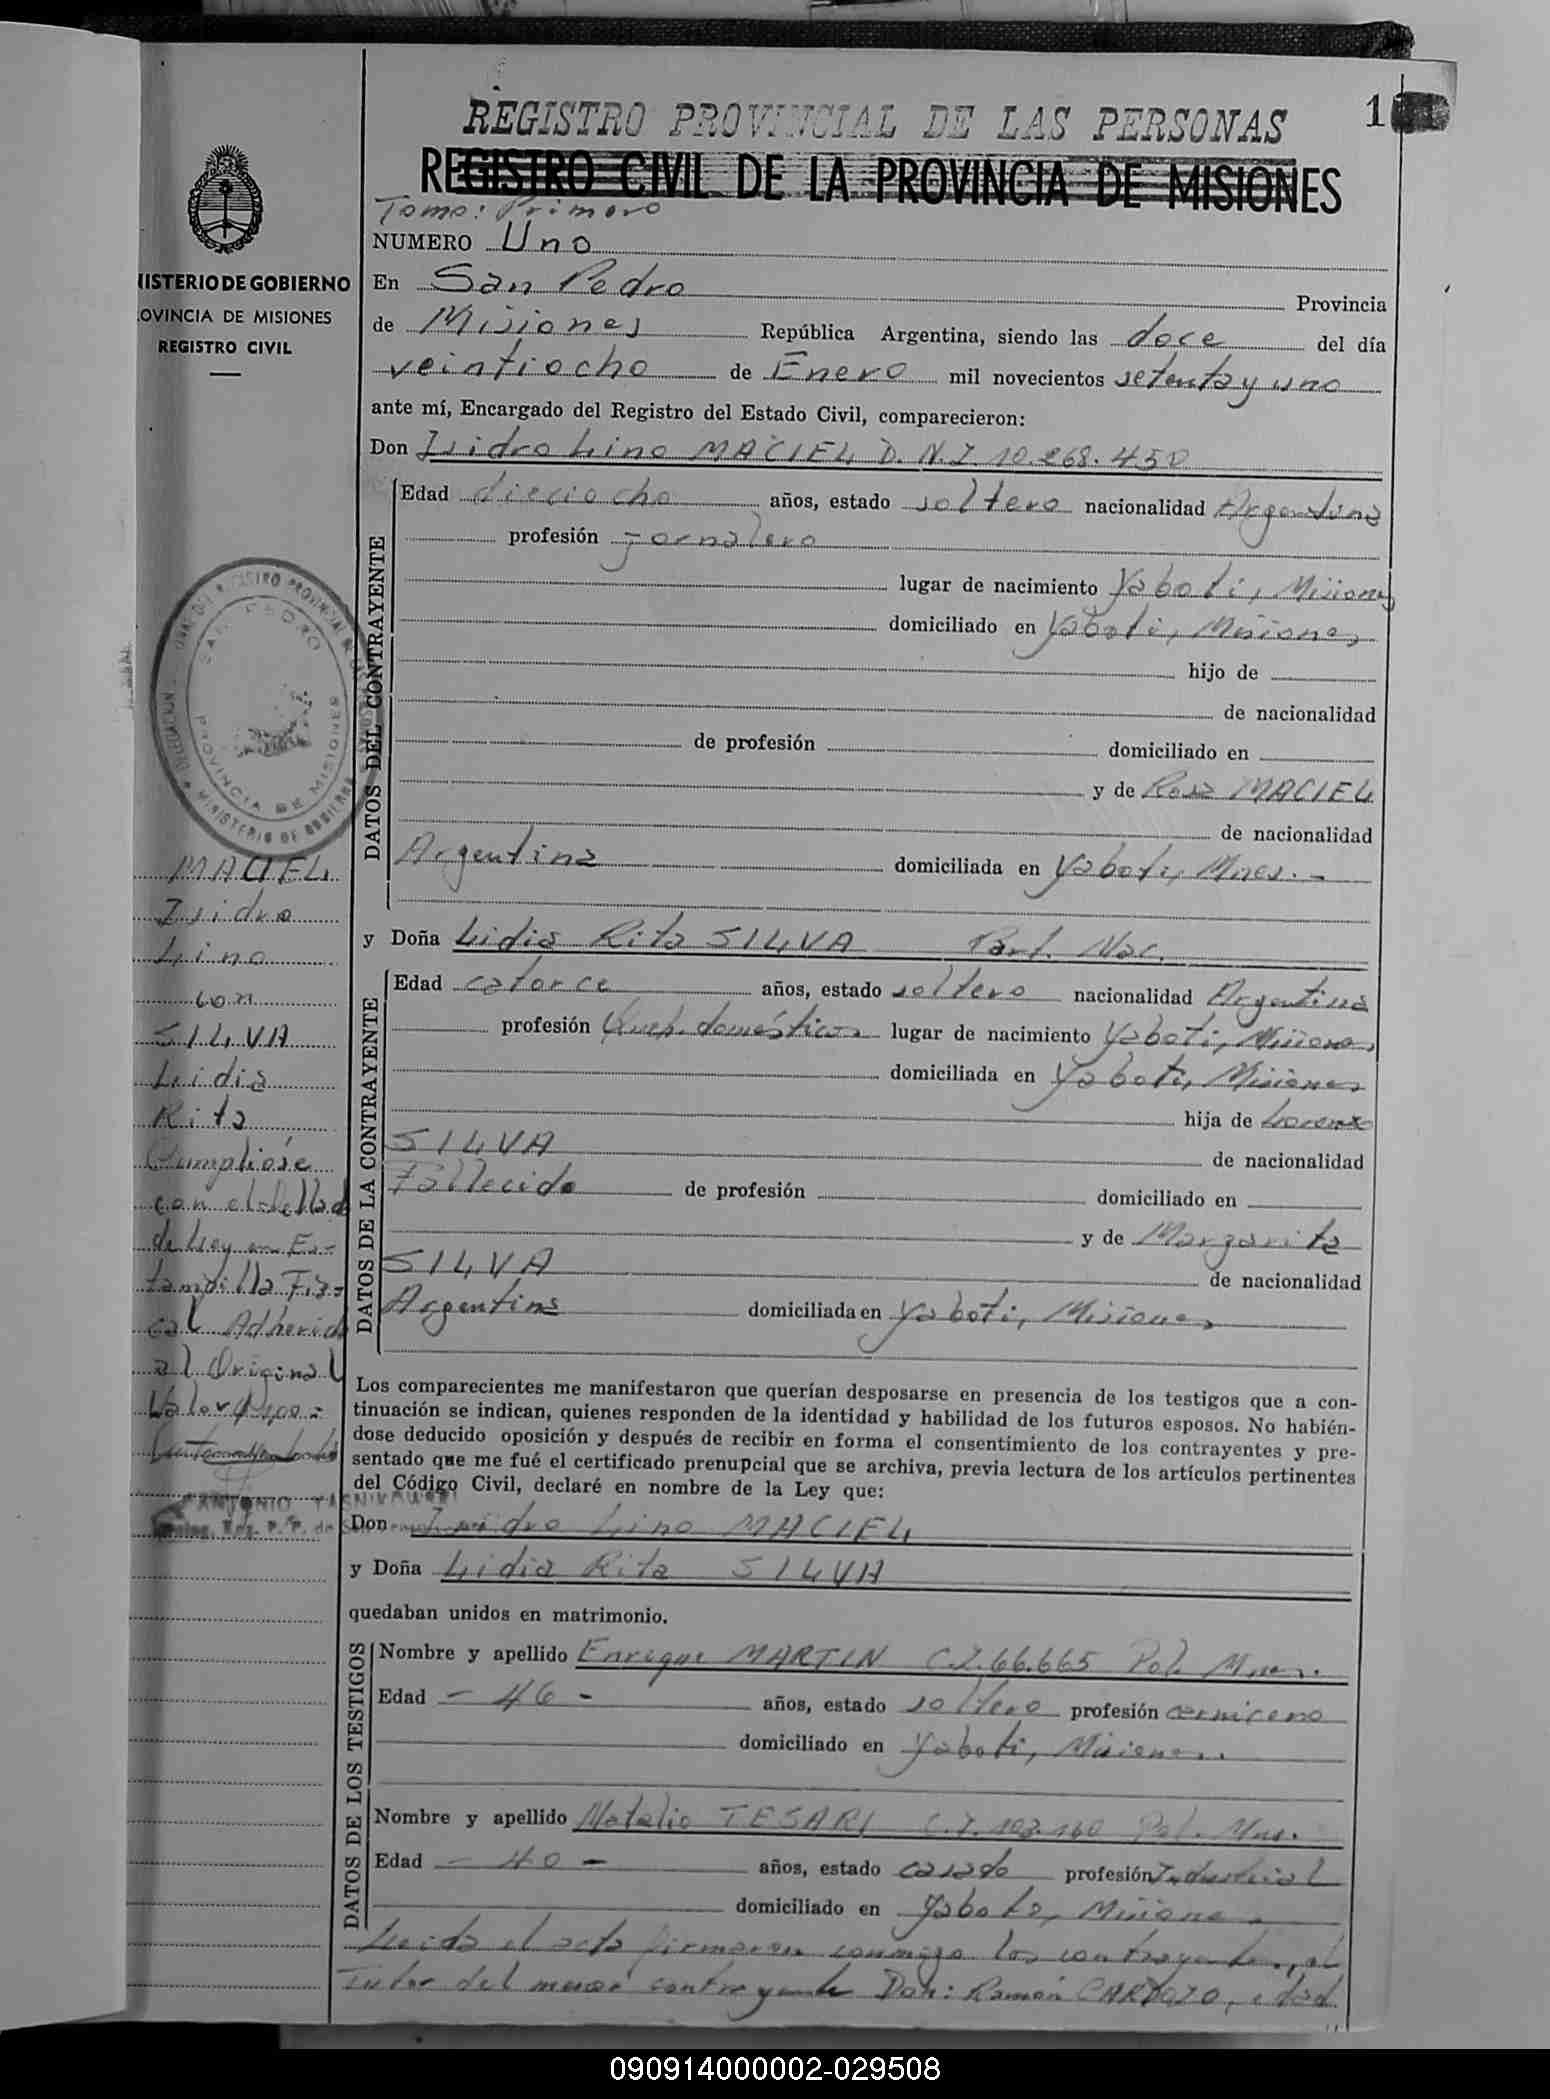 REGISTRO PROVINCIAL DE LAS PERSONAS
1
REGISTRO CIVIL DE LA PROVINCIA DE MISIONES
Tomo: Primero
NUMERO Uno
En San Pedro Provincia
de Misiones República Argentina, siendo las doce del día
veintiocho de Enero mil novecientos setenta y uno
ante mí, Encargado del Registro del Estado Civil, comparecieron:
Don Isidro Lino MACIEL D.N.I. 10.268.450
DATOS DEL CONTRAYENTE
Edad dieciocho años, estado soltero nacionalidad Argentina
profesión Jornalero
lugar de nacimiento Yaboti, Misiones
domiciliado en Yaboti, Misiones
hijo de
de nacionalidad
de profesión domiciliado en
y de Rosa MACIEL
de nacionalidad
Argentina domiciliada en Yaboti, Mnes.-
y Doña Lidia Rita SILVA Part. Nac.
DATOS DE LA CONTRAYENTE
Edad catorce años, estado soltero nacionalidad Argentina
profesión Queh. domésticos lugar de nacimiento Yaboti, Misiones
domiciliada en Yaboti, Misiones
hija de Lorenzo
SILVA de nacionalidad
Fallecido de profesión domiciliado en
y de Margarita
SILVA de nacionalidad
Argentina domiciliada en Yaboti, Misiones
Los comparecientes me manifestaron que querían desposarse en presencia de los testigos que a con-
tinuación se indican, quienes responden de la identidad y habilidad de los futuros esposos. No habién-
dose deducido oposición y después de recibir en forma el consentimiento de los contrayentes y pre-
sentado que me fué el certificado prenupcial que se archiva, previa lectura de los artículos pertinentes
del Código Civil, declaré en nombre de la Ley que:
Don Isidro Lino MACIEL
y Doña Lidia Rita SILVA
quedaban unidos en matrimonio.
DATOS DE LOS TESTIGOS
Nombre y apellido Enrique MARTIN C.I. 66.665 Pol. Mnes.
Edad - 46 - años, estado soltero profesión
domiciliado en Yaboti, Misiones.
Nombre y apellido Natalio TESARI C.I. Pol. Mnes.
Edad - 40 - años, estado casado profesión Industrial
domiciliado en Yaboti, Misiones
Leida el acta firmaron conmigo los contrayentes, el
Tutor del menor contrayente Don: Ramón CARDOZO, edad
NISTERIO DE GOBIERNO
OVINCIA DE MISIONES
REGISTRO CIVIL
DELEGACION REGISTRO PROVINCIAL DE LAS
SAN PEDRO
PROVINCIA DE MISIONES
MINISTERIO DE GOBIERNO
MACIEL
Isidro
Lino
con
SILVA
Lidia
Rita
Cumplióse
con el sellado
de Ley en Es-
tampilla Fis-
cal Adherida
al Original
Valor
ANTONIO YASNIKOWSKI
090914000002-029508